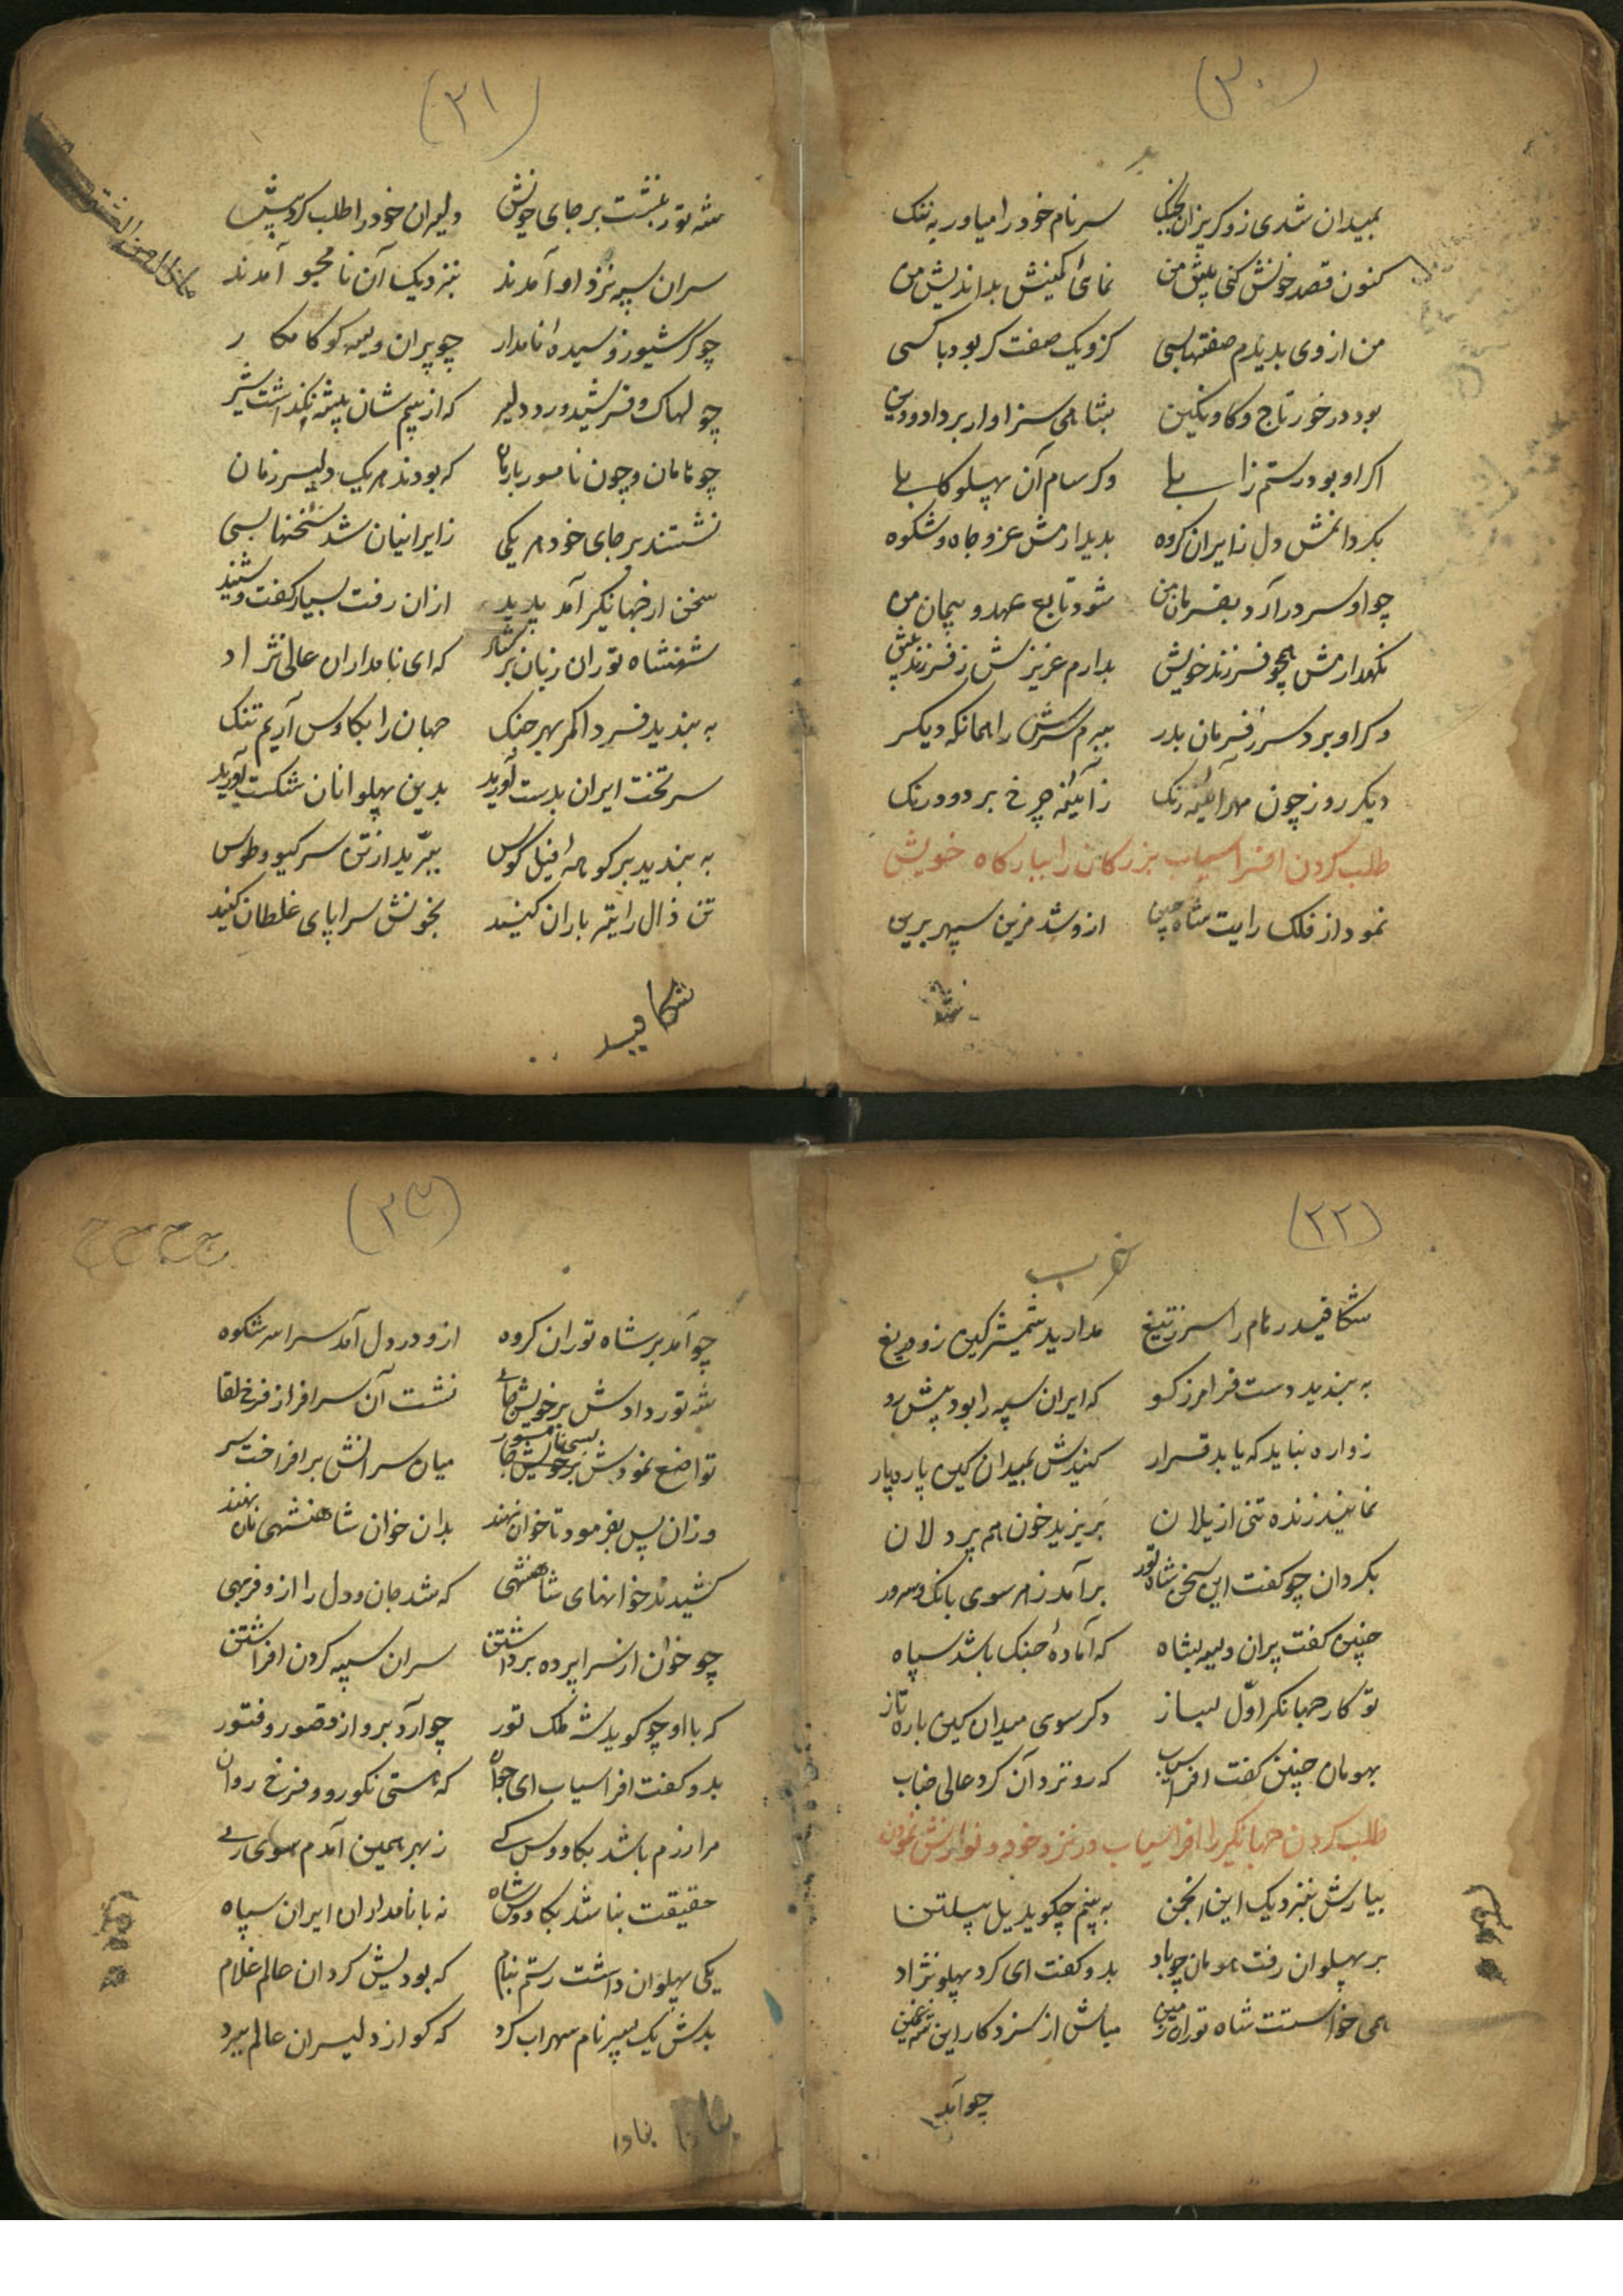 (۳۰)
بمیدان شدی زو گریزان بجنگ سر نام خود را میاور به ننک
کنون قصد خونش کنی پیش من نمائ کمینش بداندیش من
من از وی بدیدم صفتها بسی کزو یک صفت کر بود با کسی
بود در خور تاج و کاه و نکین بشاهی سزاوار برداد و دین
اکر او بود رستم زابلی وکر سام آن پهلو کابلی
بکردانمش دل ز ایران کروه بدید ارمش عز و جاه و شکوه
چو او سر در آرد بفرمان من شود تابع عهد و پیمان من
نکهدارمش همچو فرزند خویش بدارم عزیزش ز فرزند پیش
وکر او برد سر ز فرمان بدر ببرم سرش را همانکه دیکر
دیکر روز چون مهر آئینه رنک ز آئینه چرخ بر دود رنک
طلب کردن افراسیاب بزرکان را ببارکاه خویش
نمود از فلک رایت شاه چین از و شد مزین سپهر برین
(۳۱)
شه تور بنشست بر جای خویش دلیران خود را طلب کرد پیش
سران سپه نزد او آمدند بنزدیک آن نامجو آمدند
چو کرشیوز و سیده نامدار چو پیران ویسه کو کامکار
چو لهاک و فرشیدورد دلیر که از بیم شان بیشه بگذاشت شیر
چو هامان و چون نامور بارمان که بودند هریک دلیر زمان
نشستند بر جای خود هر یکی ز ایرانیان شد سخنها بسی
سخن از جهانکیر آمد پدید ازان رفت بسیار کفت و شنید
شهنشاه توران زبان بر کشاد که ای نامداران عالی نژاد
به بندید فردا کمر بهر جنک جهان را بکاوس آریم تنک
سر تخت ایران بدست آورید بدین پهلوانان شکست آورید
به بندید بر کوهه فیل کوس ببرید از تن سر کیو و طوس
تن ذال را تیر باران کنید بخونش سراپای غلطان کنید
شکافید
(۳۲)
شکافید رهام را سر ز تیغ مدارید شمشیر کین زو دریغ
به بندید دست فرامرز کو که ایران سپه را بود پیش رو
زواره نباید که یابد قرار کنیدش بمیدان کین پاره پار
نمانید زنده تنی از یلان بریزید خون هم پردلان
بکردان چو کفت این سخن شاه تور برآمد ز هر سوی بانک و سرور
چنین کفت پیران ویسه بشاه که آمادهٔ جنک باشد سپاه
تو کار جهانکیر اوّل بساز دکر سوی میدان کین باره تاز
بهومان چنین کفت افراسیاب که رو نزد آن کرد عالی جناب
طلب کردن جهانکیر را افراسیاب در نزد خود و نوازش نمودن
بیارش بنزدیک این انجمن به بینم چکوید یل پیلتن
بر پهلوان رفت هومان چو باد بدو کفت ای کرد پهلو نژاد
همی خواستت شاه توران زمین مباش از سر کار این شه غمین
چو آمد
(۳۳)
چو آمد بر شاه توران کروه ازو در دل آمد سراسر شکوه
شه تور دادش بر خویش جای نشست آن سرافراز فرخ لقا
تواضع نمودش بسی نامور میان سرانش برافراخت سر
وزان پس بفرمود تا خوان نهند بدان خوان شاهنشهی نان نهند
کشیدند خوانهای شاهنشهی که شد جان و دل را ازو فربهی
چو خوان از سراپرده برداشتن سران سپه کردن افراشتن
که با او چو کوید شه ملک تور چو آرد برو از قصور و فتور
بدو کفت افراسیاب ای جوان که هستی نکو رو و فرخ روان
مرا رزم باشد بکاووس کے ز بهر همین آمدم سوی ری
حقیقت بنا شد بکاووس شاه نه با نامداران ایران سپاه
یکی پهلوان داشت رستم بنام که بودیش کردان عالم غلام
بدش یک پسر نام سهراب کرد که کو از دلیران عالم ببرد